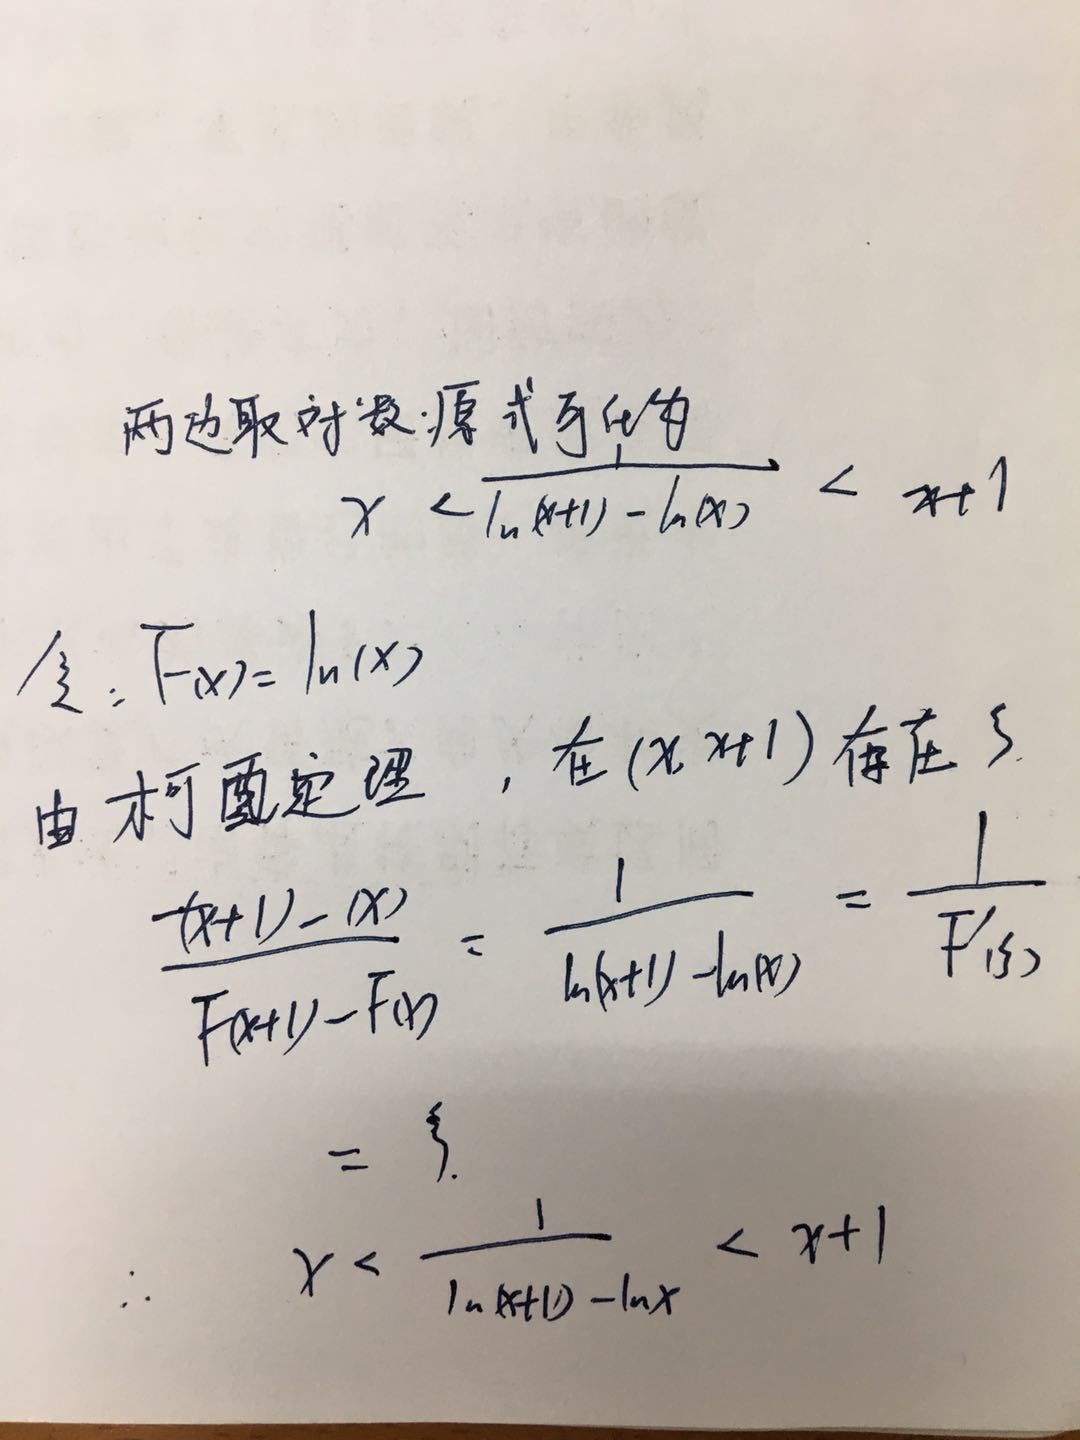 两边取对数:原式可化为
x < 1/(ln(x+1) - ln(x)) < x+1
令: F(x) = ln(x)
由柯西定理, 在(x, x+1)存在ξ.
((x+1) - (x))/(F(x+1) - F(x)) = 1/(ln(x+1) - ln(x)) = 1/F'(ξ)
= ξ.
∴ x < 1/(ln(x+1) - lnx) < x+1